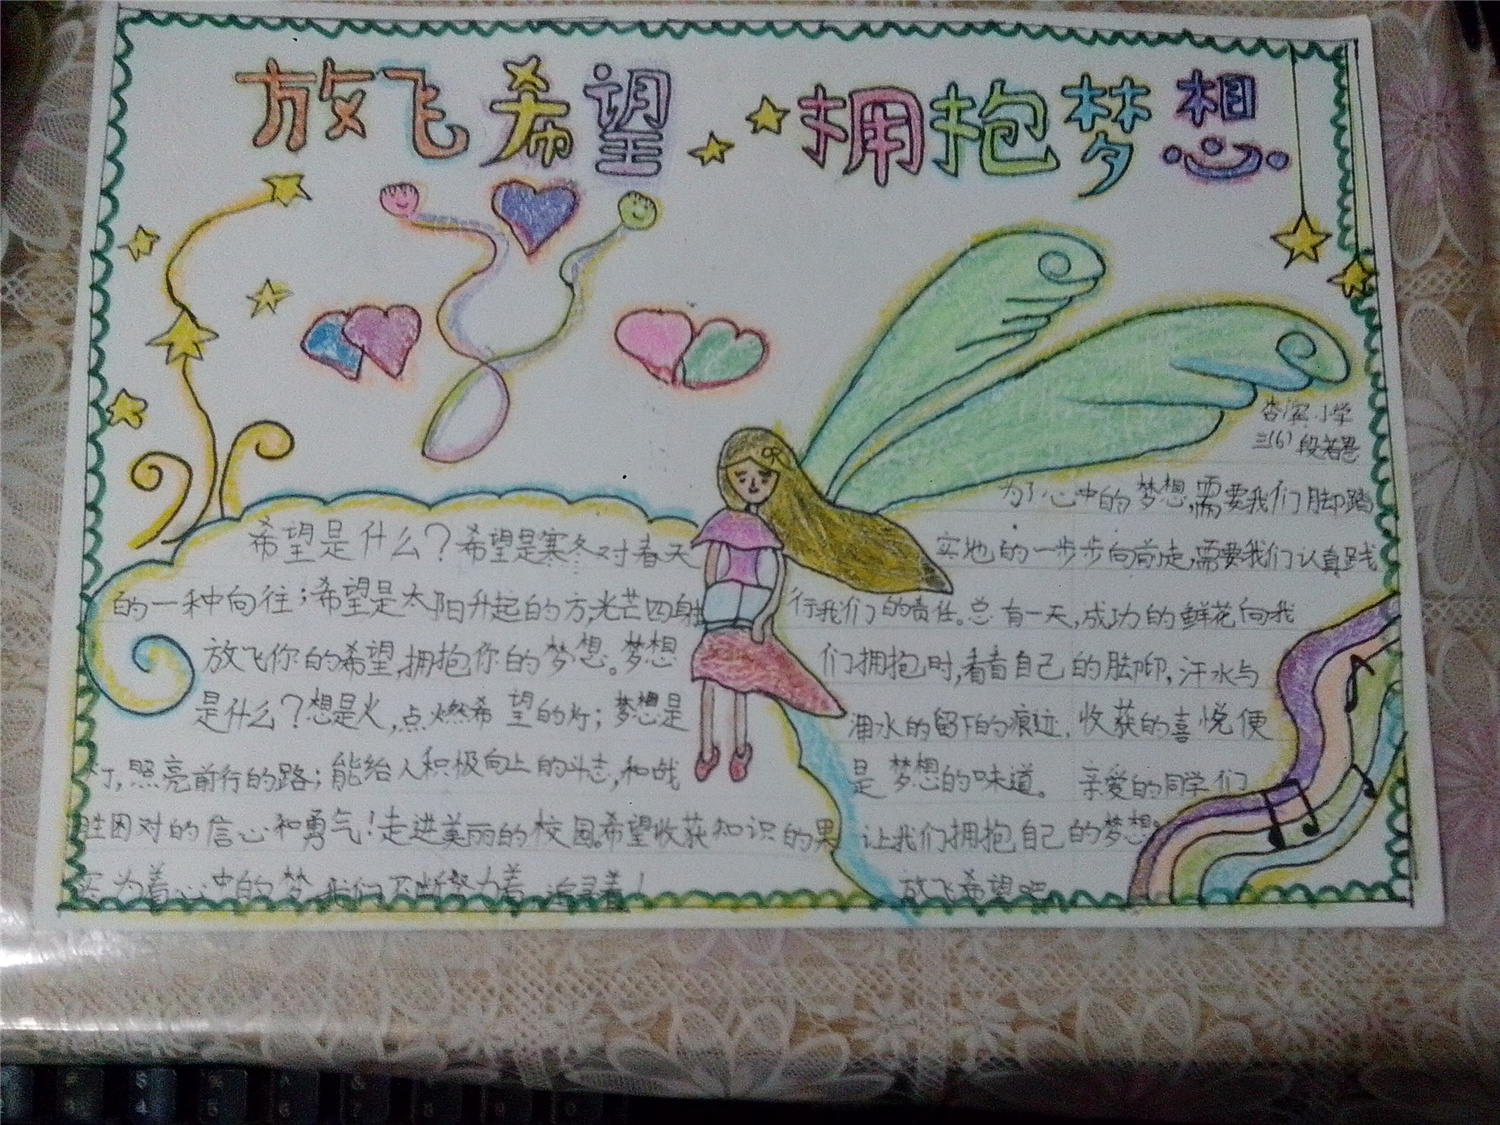 放飞希望 拥抱梦想
杏滨小学
三(6) 段若
希望是什么？希望是寒冬对春天
的一种向往；希望是太阳升起的方，光芒四射
放飞你的希望，拥抱你的梦想。梦想
是什么？想是火，点燃希望的灯；梦想是
灯，照亮前行的路；能给人积极向上的斗志，和战
胜困对的信心和勇气！走进美丽的校园。希望收获知识的果
为着心中的梦，我们不断努力着，追寻着！
为了心中的梦想，需要我们脚踏
实地的一步步向前走，需要我们认真践
行我们的责任。总有一天，成功的鲜花向我
们拥抱时，看看自己的脚印，汗水与
泪水的留下的痕迹，收获的喜悦便
是梦想的味道。 亲爱的同学们
让我们拥抱自己的梦想，
放飞希望吧